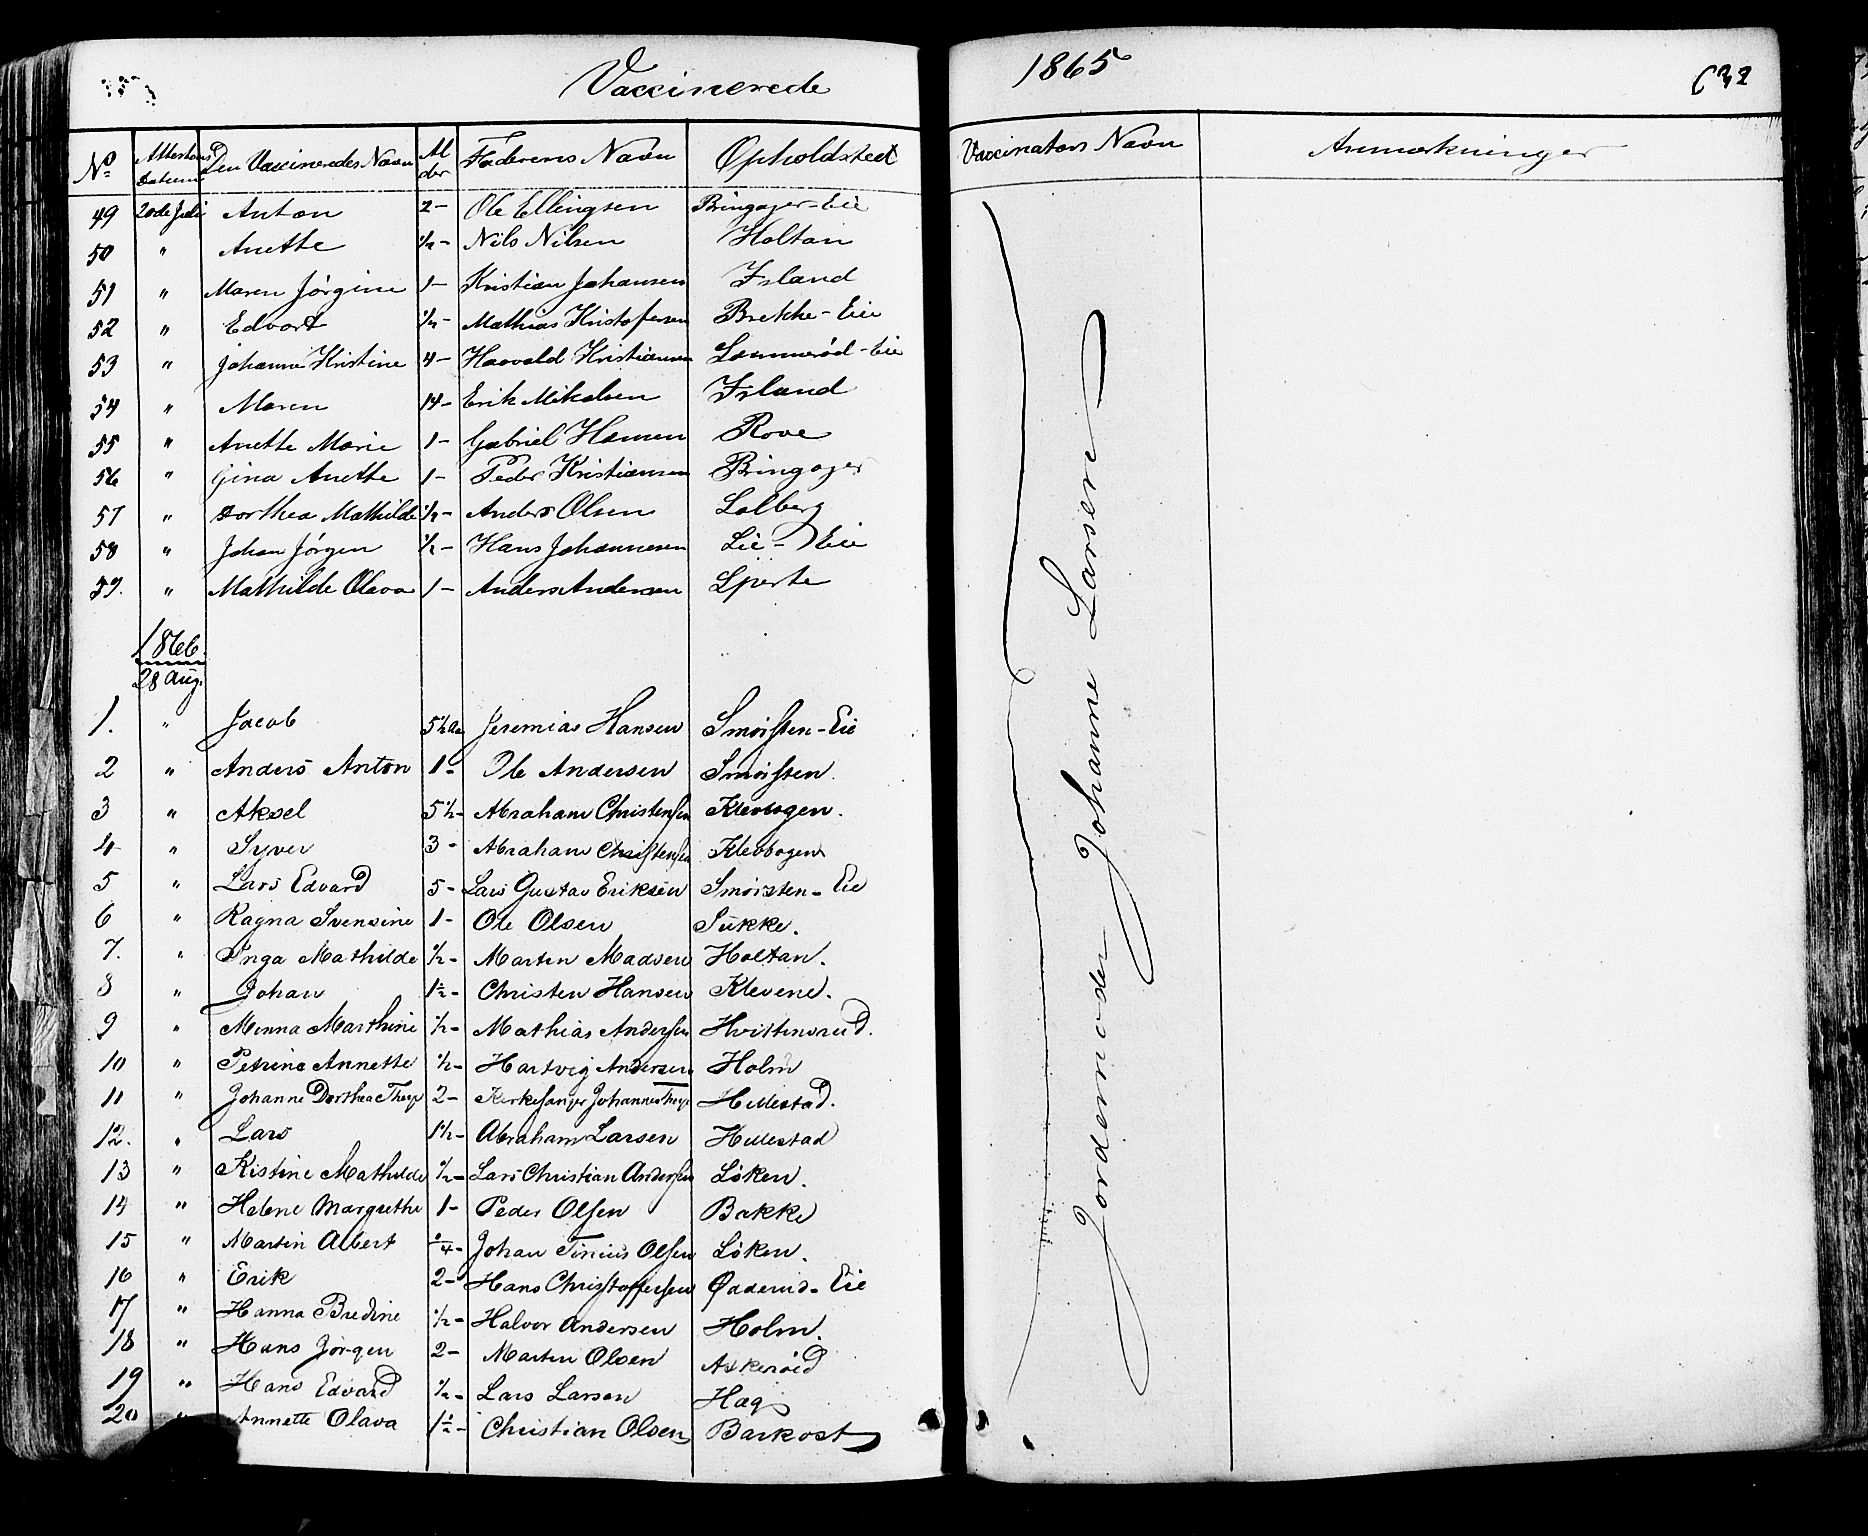 Vaccinerede
1865
632
No Attestens Datum Den Vaccineredes Navn Alder Faderens Navn Opholdsted Vaccinators Navn Anmærkninger
49 20de Juli Anton 2 - Ole Ellingsen Bringager - Eie
50 " Anette 1/2 - Nils Nilsen Holtan
51 " Maren Jørgine 1 - Kristian Johansen Island
52 " Edvart 1/2 - Mathias Kristofersen Brekke - Eie
53 " Johanne Kristine 4 - Haavald Kristiansen - Eie
54 " Maren 14 - Erik Mikalsen Island
55 " Anette Marie 1 - Gabriel Hansen Rove
56 " Gina Anette 1 - Peder Kristiansen Bringager
57 " Dorthea Mathilde 1/2 - Anders Olsen Solberg
58 " Johan Jørgen 1/2 - Hans Johannesen Lie - Eie
59. " Mathilde Olava 1 - Anders Andersen
1866.
28 Aug.
1. " Jacob 5 1/2 Aar Jeremias Hansen Smørsten - Eie
2 " Anders Anton 1 - Ole Andersen Smørsten.
3 " Aksel 5 1/2 - Abraham Christensen Klevbogen.
4 " Syver 3 - Abraham Christensen Klevbogen
5 " Lars Edvard 5 - Lars Gustav Eriksen Smørsten - Eie
6 " Ragna Svensine 1 - Ole Olsen Sukke.
7. " Inga Mathilde 1/2 - Marten Madsen Holtan.
8 " Johan 1 1/2 - Christen Hansen Klevene.
9 " Minna Marthine 1/2 - Mathias Andersen Hvittensrud.
10 " Petrine Annette 1/2 - Hartvig Andersen Holm
11 " Johanne Dorthea Thorp 2 - Kirkesanger Johannes Thorp Hillestad.
12. " Lars 1 1/2 - Abraham Larsen Hillestad
13 " Kistine Mathilde 1/2 - Lars Christian Andersen Löken.
14 " Helene Margrethe 1 - Peder Olsen Bakke
15 " Martin Albert 1/4 - Johan Tinius Olsen Löken.
16 " Erik 2 - Hans Christoffersen - Eie
17 " Hanna Bredine 1/2 - Halvor Andersen Holm.
18 " Hans Jørgen 2 - Martin Olsen Askerøid
19 " Hans Edvard 1/2 - Lars Larsen Hag
20 " Annette Olava 1 1/2 - Christian Olsen Barkost
Jordemoder Johanne Larsen